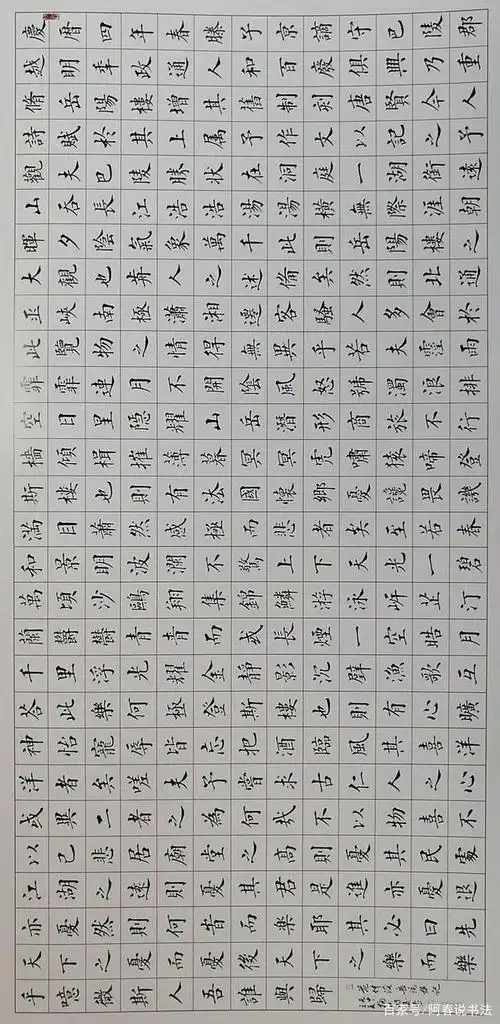 慶曆四年春滕子京謫守巴陵郡
越明年政通人和百廢俱興乃重
脩岳陽樓增其舊制刻唐賢今人
詩賦於其上属予作文以記之予
觀夫巴陵勝狀在洞庭一湖銜遠
山吞長江浩浩湯湯橫無際涯朝
暉夕陰氣象萬千此則岳陽樓之
大觀也前人之述備矣然則北通
巫峽南極瀟湘遷客騷人多會於
此覽物之情得無異乎若夫霪雨
霏霏連月不開陰風怒號濁浪排
空日星隱耀山岳潛形商旅不行
檣傾楫摧薄暮冥冥虎嘯猿啼登
斯樓也則有去國懷鄉憂讒畏譏
滿目蕭然感極而悲者矣至若春
和景明波瀾不驚上下天光一碧
萬頃沙鷗翔集錦鱗游泳岸芷汀
蘭欝欝青青而或長煙一空皓月
千里浮光耀金靜影沉璧漁歌互
荅此樂何極登斯樓也則有心曠
神怡寵辱皆忘把酒臨風其喜洋
洋者矣嗟夫予嘗求古仁人之心
或異二者之為何哉不以物喜不
以己悲居廟堂之高則憂其民處
江湖之遠則憂其君是進亦憂退
亦憂然則何时而樂耶其必曰先
天下之憂而憂後天下之樂而樂
乎噫微斯人吾誰與歸
百家号/阿春说书法